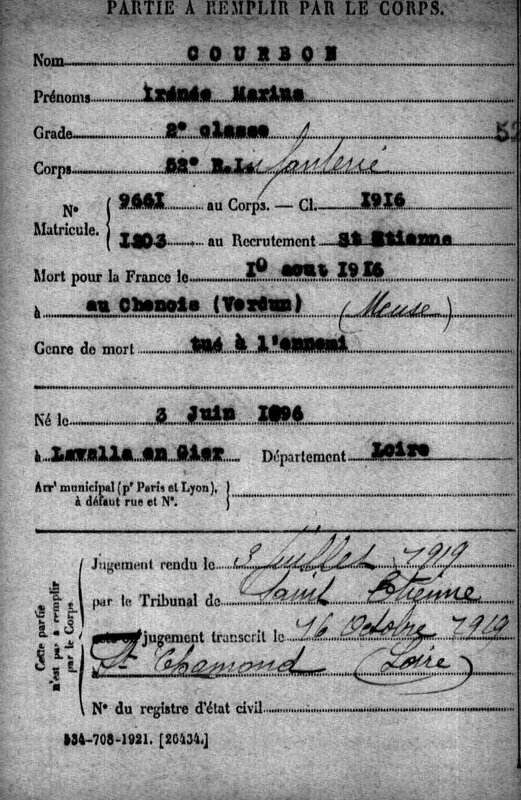 PARTIE À REMPLIR PAR LE CORPS.
Nom COURBON
Prénoms Irénée Marius
Grade 2e classe
52
Corps 52e R.I. Infanterie
N° Matricule. { 9661 au Corps. — Cl. 1916
1203 au Recrutement St Etienne
Mort pour la France le 1° aout 1916
à au Chenois (Verdun) (Meuse)
Genre de mort tué à l'ennemi
Né le 3 Juin 1896
à Lavalla en Gier Département Loire
Arrt municipal (pr Paris et Lyon), à défaut rue et N°. }
Cette partie n'est pas à remplir par le Corps. {
Jugement rendu le 3 Juillet 1919
par le Tribunal de Saint Etienne
jugement transcrit le 16 Octobre 1919
à St Chamond (Loire)
N° du registre d'état civil
534-708-1921. [26434.]